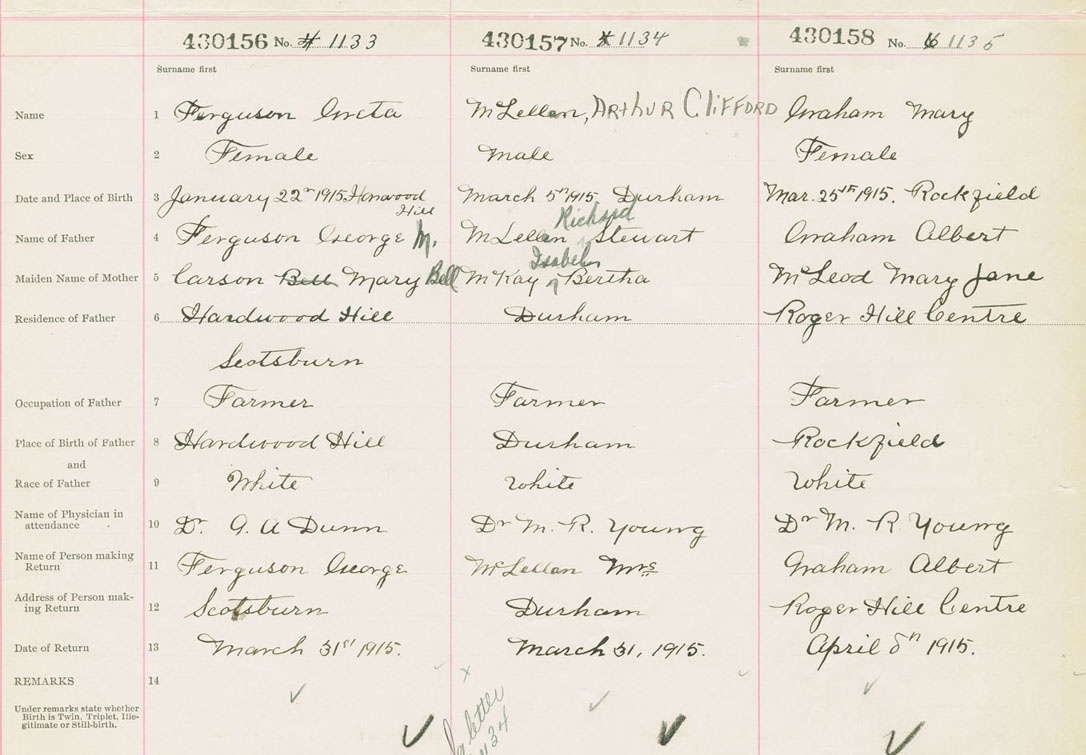 430156 No. # 1133 430157 No. 1134 430158 No. 1135
Surname first Surname first Surname first
Name 1 Ferguson Greta McLellan, ARTHUR CLIFFORD Graham Mary
Sex 2 Female Male Female
Date and Place of Birth 3 January 22nd 1915 Hardwood March 5th 1915. Durham Mar. 25th 1915. Rockfield
Hill Richard
Name of Father 4 Ferguson George M. McLellan Stewart Graham Albert
Isabel
Maiden Name of Mother 5 Carson Bell Mary Bell McKay Bertha McLeod Mary Jane
Residence of Father 6 Hardwood Hill Durham Roger Hill Centre
Scotsburn
Occupation of Father 7 Farmer Farmer Farmer
Place of Birth of Father 8 Hardwood Hill Durham Rockfield
and
Race of Father 9 White White White
Name of Physician in
attendance 10 Dr. G. A Dunn Dr M. R. Young Dr M. R Young
Name of Person making
Return 11 Ferguson George McLellan Mrs Graham Albert
Address of Person mak-
ing Return 12 Scotsburn Durham Roger Hill Centre
Date of Return 13 March 31st 1915. March 31, 1915. April 8th 1915.
REMARKS 14
Under remarks state whether
Birth is Twin, Triplet, Ille-
gitimate or Still-birth.
letter